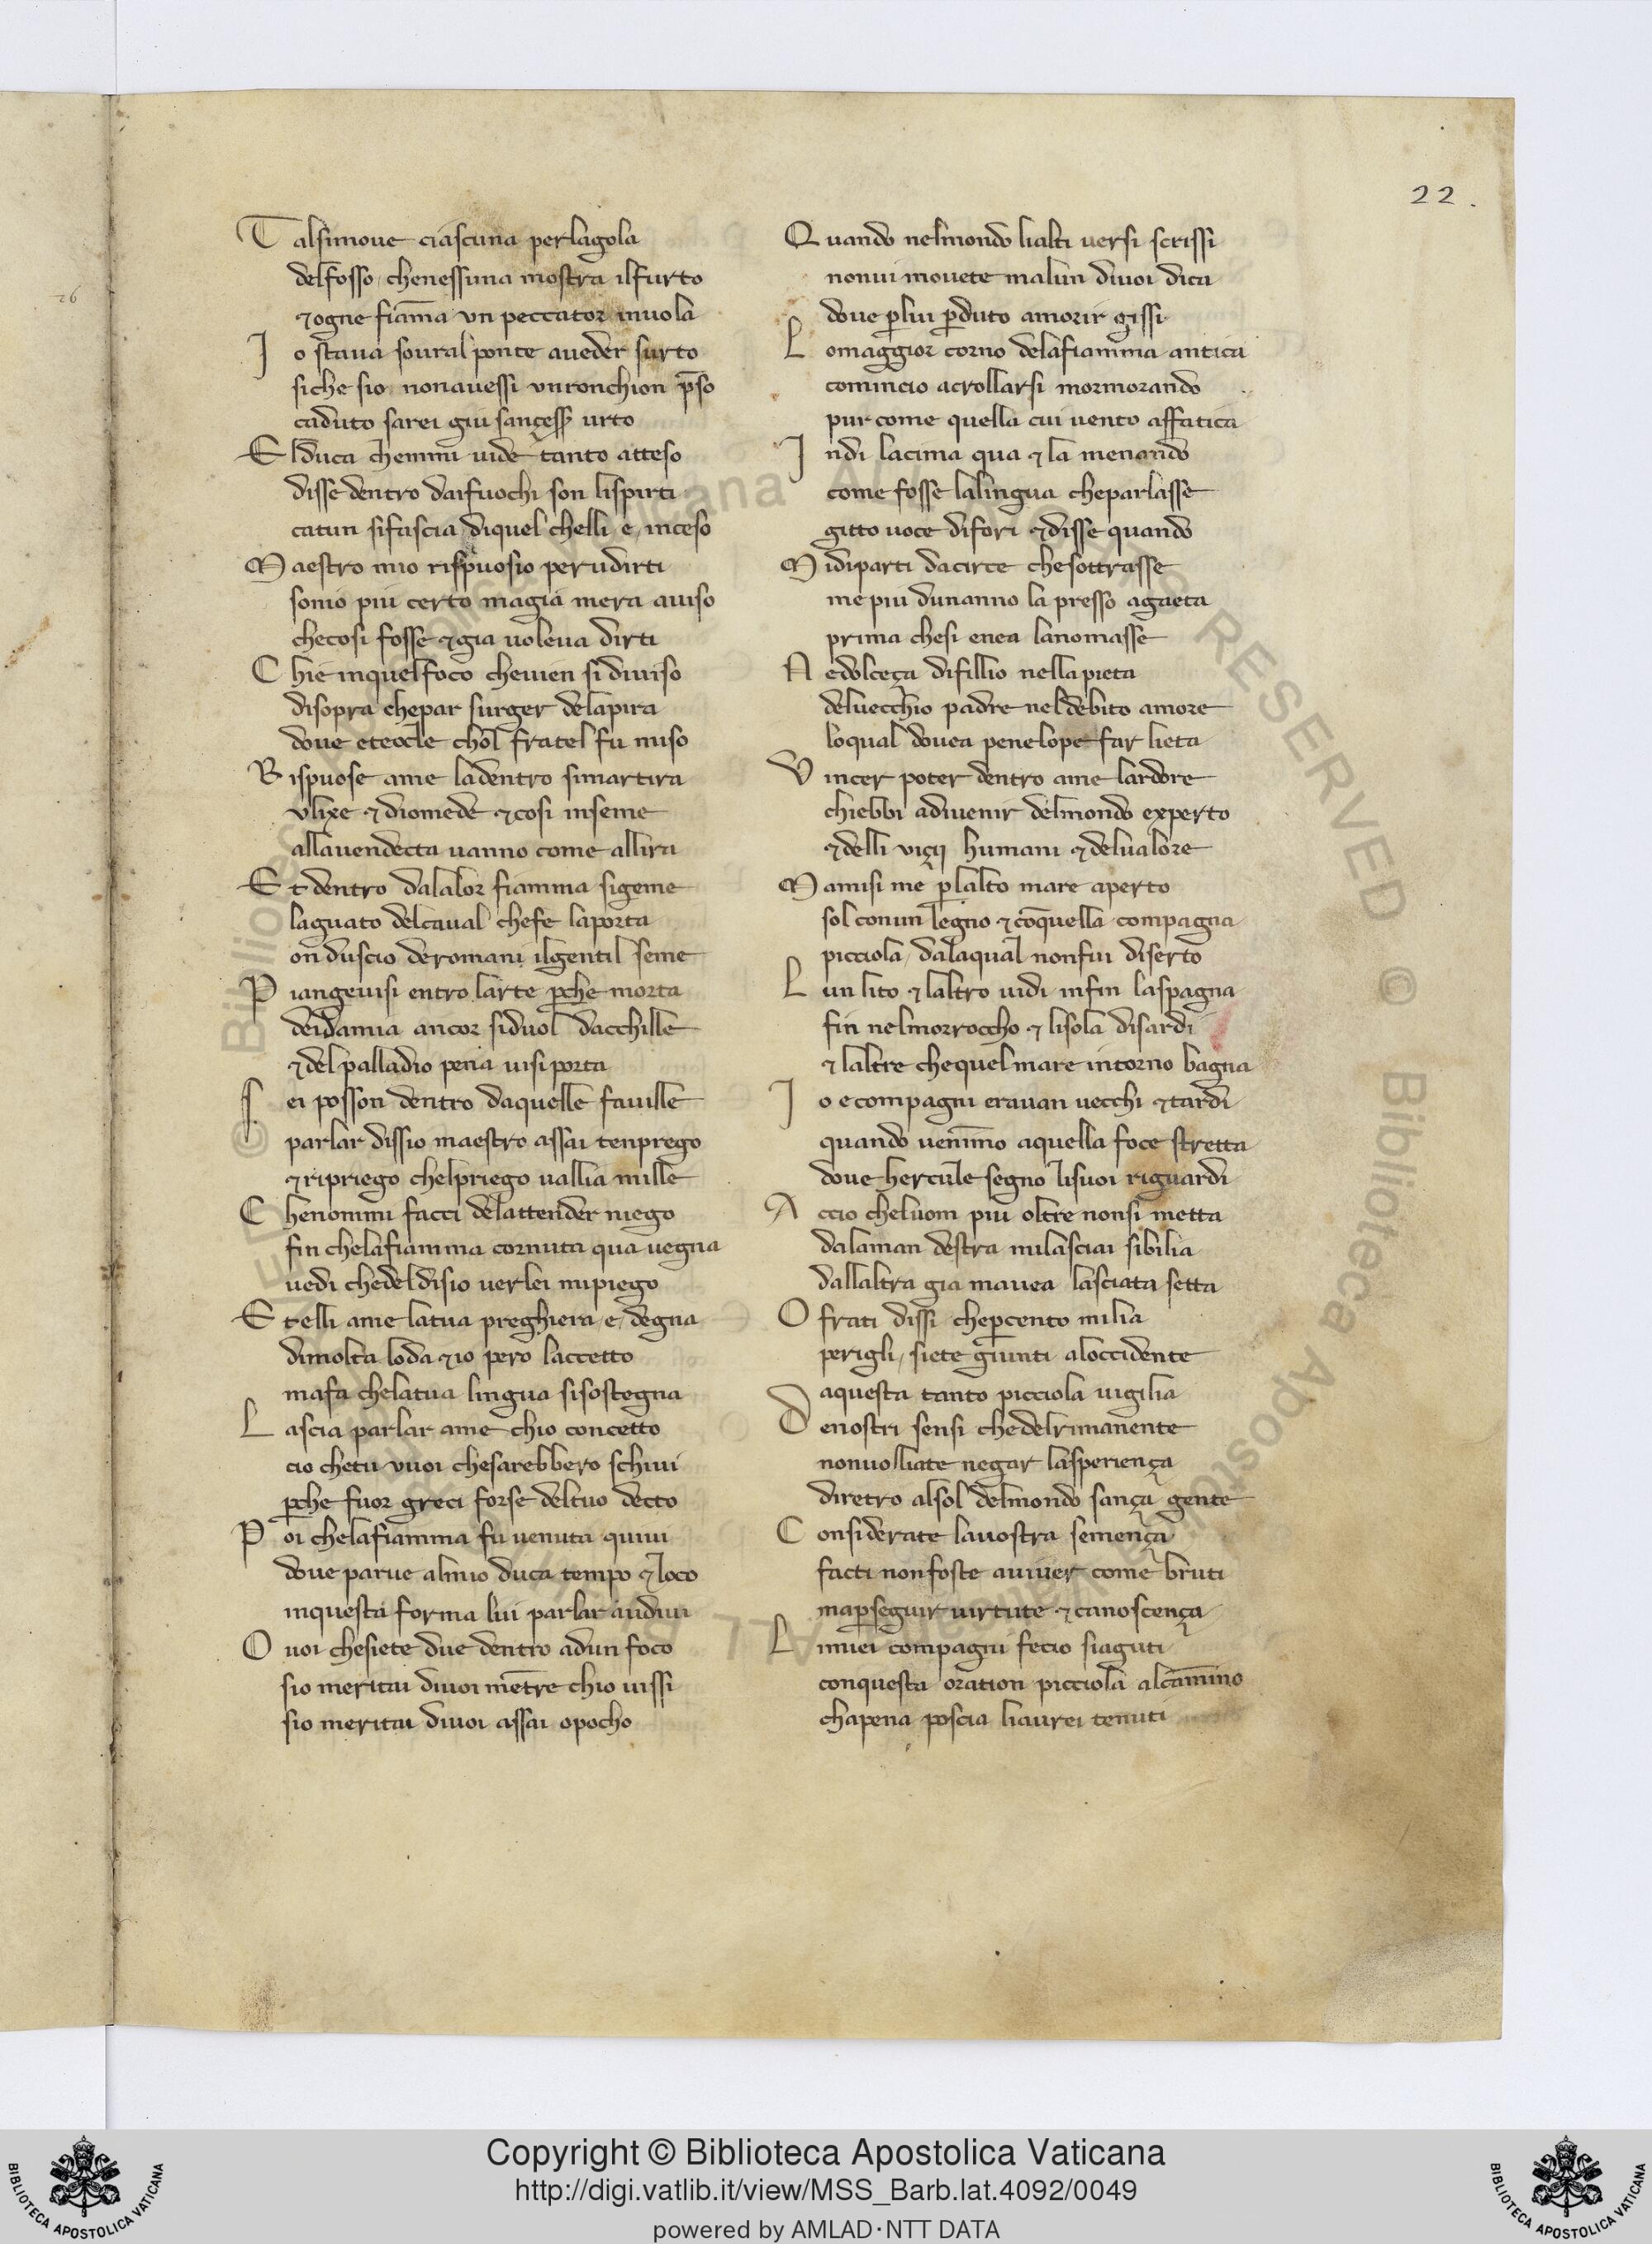 22.
26
Talsimoue ciascuna perlagola
delfosso chenessuna mostra ilfurto
⁊ogne fiam̅a vn peccator inuola
Io staua soural ponte aueder surto
siche sio nonauessi vnronchion p̅so
caduto sarei giu sançess̄ urto
Elduca chemmi uide tanto atteso
disse dentro daifuochi son lispirti
catun sifascia diquel chelli e inceso
Maestro mio rispuosio perudirti
sonio piu certo magia mera auiso
checosi fosse ⁊gia uoleua dirti
Chie inquelfoco cheuien si diuiso
disopra chepar surger delapira
doue eteocle chol fratel fu miso
Rispuose ame ladentro simartira
vlixe ⁊diomede ⁊cosi inseme
allauendecta uanno come allira
Et dentro dalalor fiamma sigeme
laguato delcaual chefe laporta
on̅duscio deromani ilgentil seme
Piangeuisi entro larte p̲che morta
deidamia ancor siduol dacchille
⁊del palladio pena uisi porta
Sei posson dentro daquelle fauille
parlar dissio maestro assai tenprego
⁊ripriego chelpriego uallia mille
Chenommi facci delattender niego
fin chelafiamma cornuta qua uegna
uedi chedeldisio uerlei mipiego
Etelli ame latua preghiera e degna
dimolta loda ⁊io pero laccetto
mafa chelatua lingua sisostegna
Lascia parlar ame chio concetto
cio chetu vuoi chesarebbero schiui
p̲che fuor greci forse deltuo decto
Poi chelafiamma fu uenuta quiui
doue parue almio duca tempo ⁊loco
inquesta forma lui parlar audiui
O uoi chesiete due dentro adun foco
sio meritai diuoi me̅tre chio uissi
sio meritai diuoi assai opocho
Quando nelmondo lialti uersi scrissi
nonui mouete malun diuoi dica
doue p̲lui p̲duto amorir gissi
Lomaggior corno delafiamma antica
comincio acrollarsi mormorando
pur come quella cui uento affatica
Indi lacima qua ⁊ la menando
come fosse lalingua cheparlasse
gitto uoce difori ⁊disse quando
Midiparti dacirce chesottrasse
me piu dunanno la presso agaeta
prima chesi enea lanomasse
Nedolceça difillio nellapieta
deluecchio padre neldebito amore
loqual douea penelope far lieta
Vincer poter dentro ame lardore
chiebbi adiuenir delmondo experto
⁊delli viçij humani ⁊delualore
Mamisi me p̲lalto mare aperto
sol conun legno ⁊co̅quella compagna
picciola dalaqual nonfui diserto
Lun lito ⁊ laltro uidi infin laspagna
fin nelmorroccho ⁊ lisola disardi
⁊ laltre chequelmare intorno bagna
Io ecompagni erauan uecchi ⁊tardi
quando uenim̅o aquella foce stretta
doue hercule segno lisuoi riguardi
Accio cheluom piu oltre nonsi metta
dalaman destra milasciai sibilia
dallaltra gia mauea lasciata setta
O frati dissi chep̲cento milia
perigli siete giunti aloccidente
aquesta tanto picciola uigilia
Denostri sensi chedelrimanente
nonuolliate negar lasperiença
diretro alsol delmondo sança gente
Considerate lauostra semença
facti nonfoste auiuer come bruti
map̲seguir uirtute ⁊ canoscença
Limiei compagni fecio siaguti
conquesta oration picciola alcam̅ino
chapena poscia liaurei tenuti
© Biblioteca Apostolica Vicana ALL RIGHTS RESERVED © Biblioteca Apostolica
Copyright © Biblioteca Apostolica Vaticana
http://digi.vatlib.it/view/MSS_Barb.lat.4092/0049
powered by AMLAD·NTT DATA
BIBLIOTECA APOSTOLICA VATICANA
BIBLIOTECA APOSTOLICA VATICANA